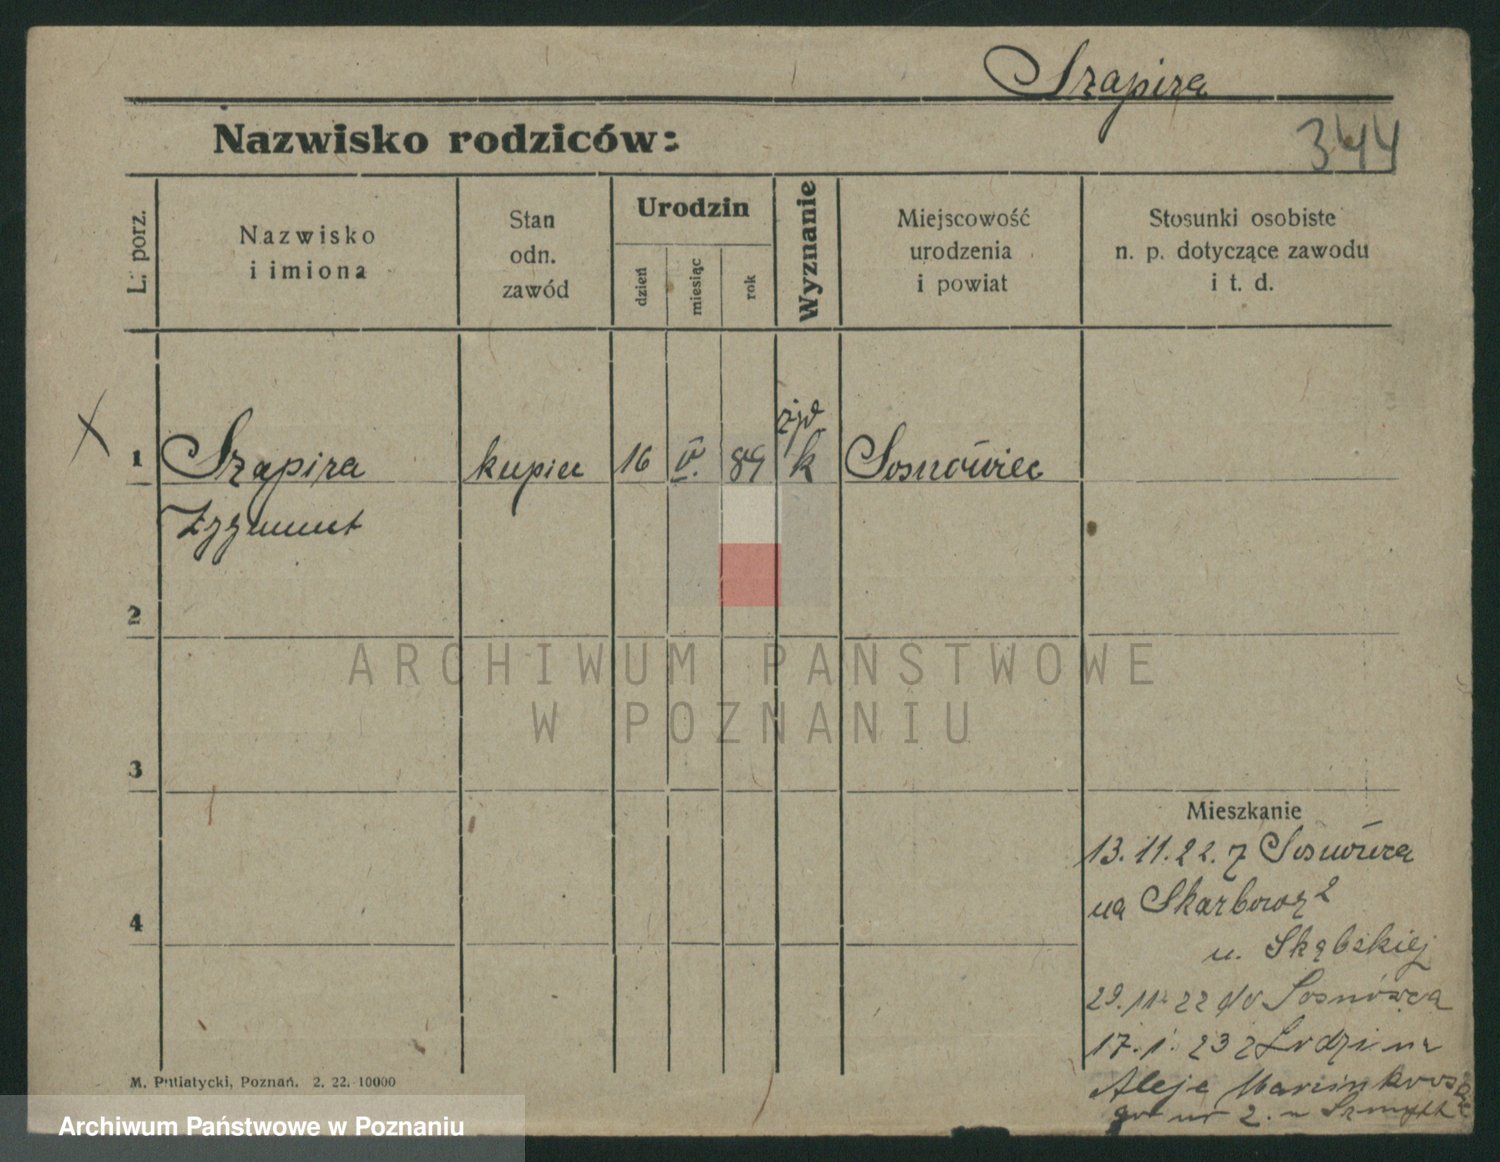 Szapira
Nazwisko rodziców:
344
L. porz.
Nazwisko
i imiona
Stan
odn.
zawód
Urodzin
dzień
miesiąc
rok
Wyznanie
Miejscowość
urodzenia
i powiat
Stosunki osobiste
n. p. dotyczące zawodu
i t. d.
X
1 Szapira kupiec 16 V. 89 żyd k Sosnówiec
Zygmunt
2
ARCHIWUM PAŃSTWOWE
W POZNANIU
3
Mieszkanie
13.11.22. z Sosnówca
na Skarbową 2
u. Skąbskiej
4
29.11.22 do Sosnówca
17.1.23 z Łodzi na
Aleje Marcinkows
go nr 2. u
M. Putiatycki, Poznań. 2. 22. 10000
Archiwum Państwowe w Poznaniu